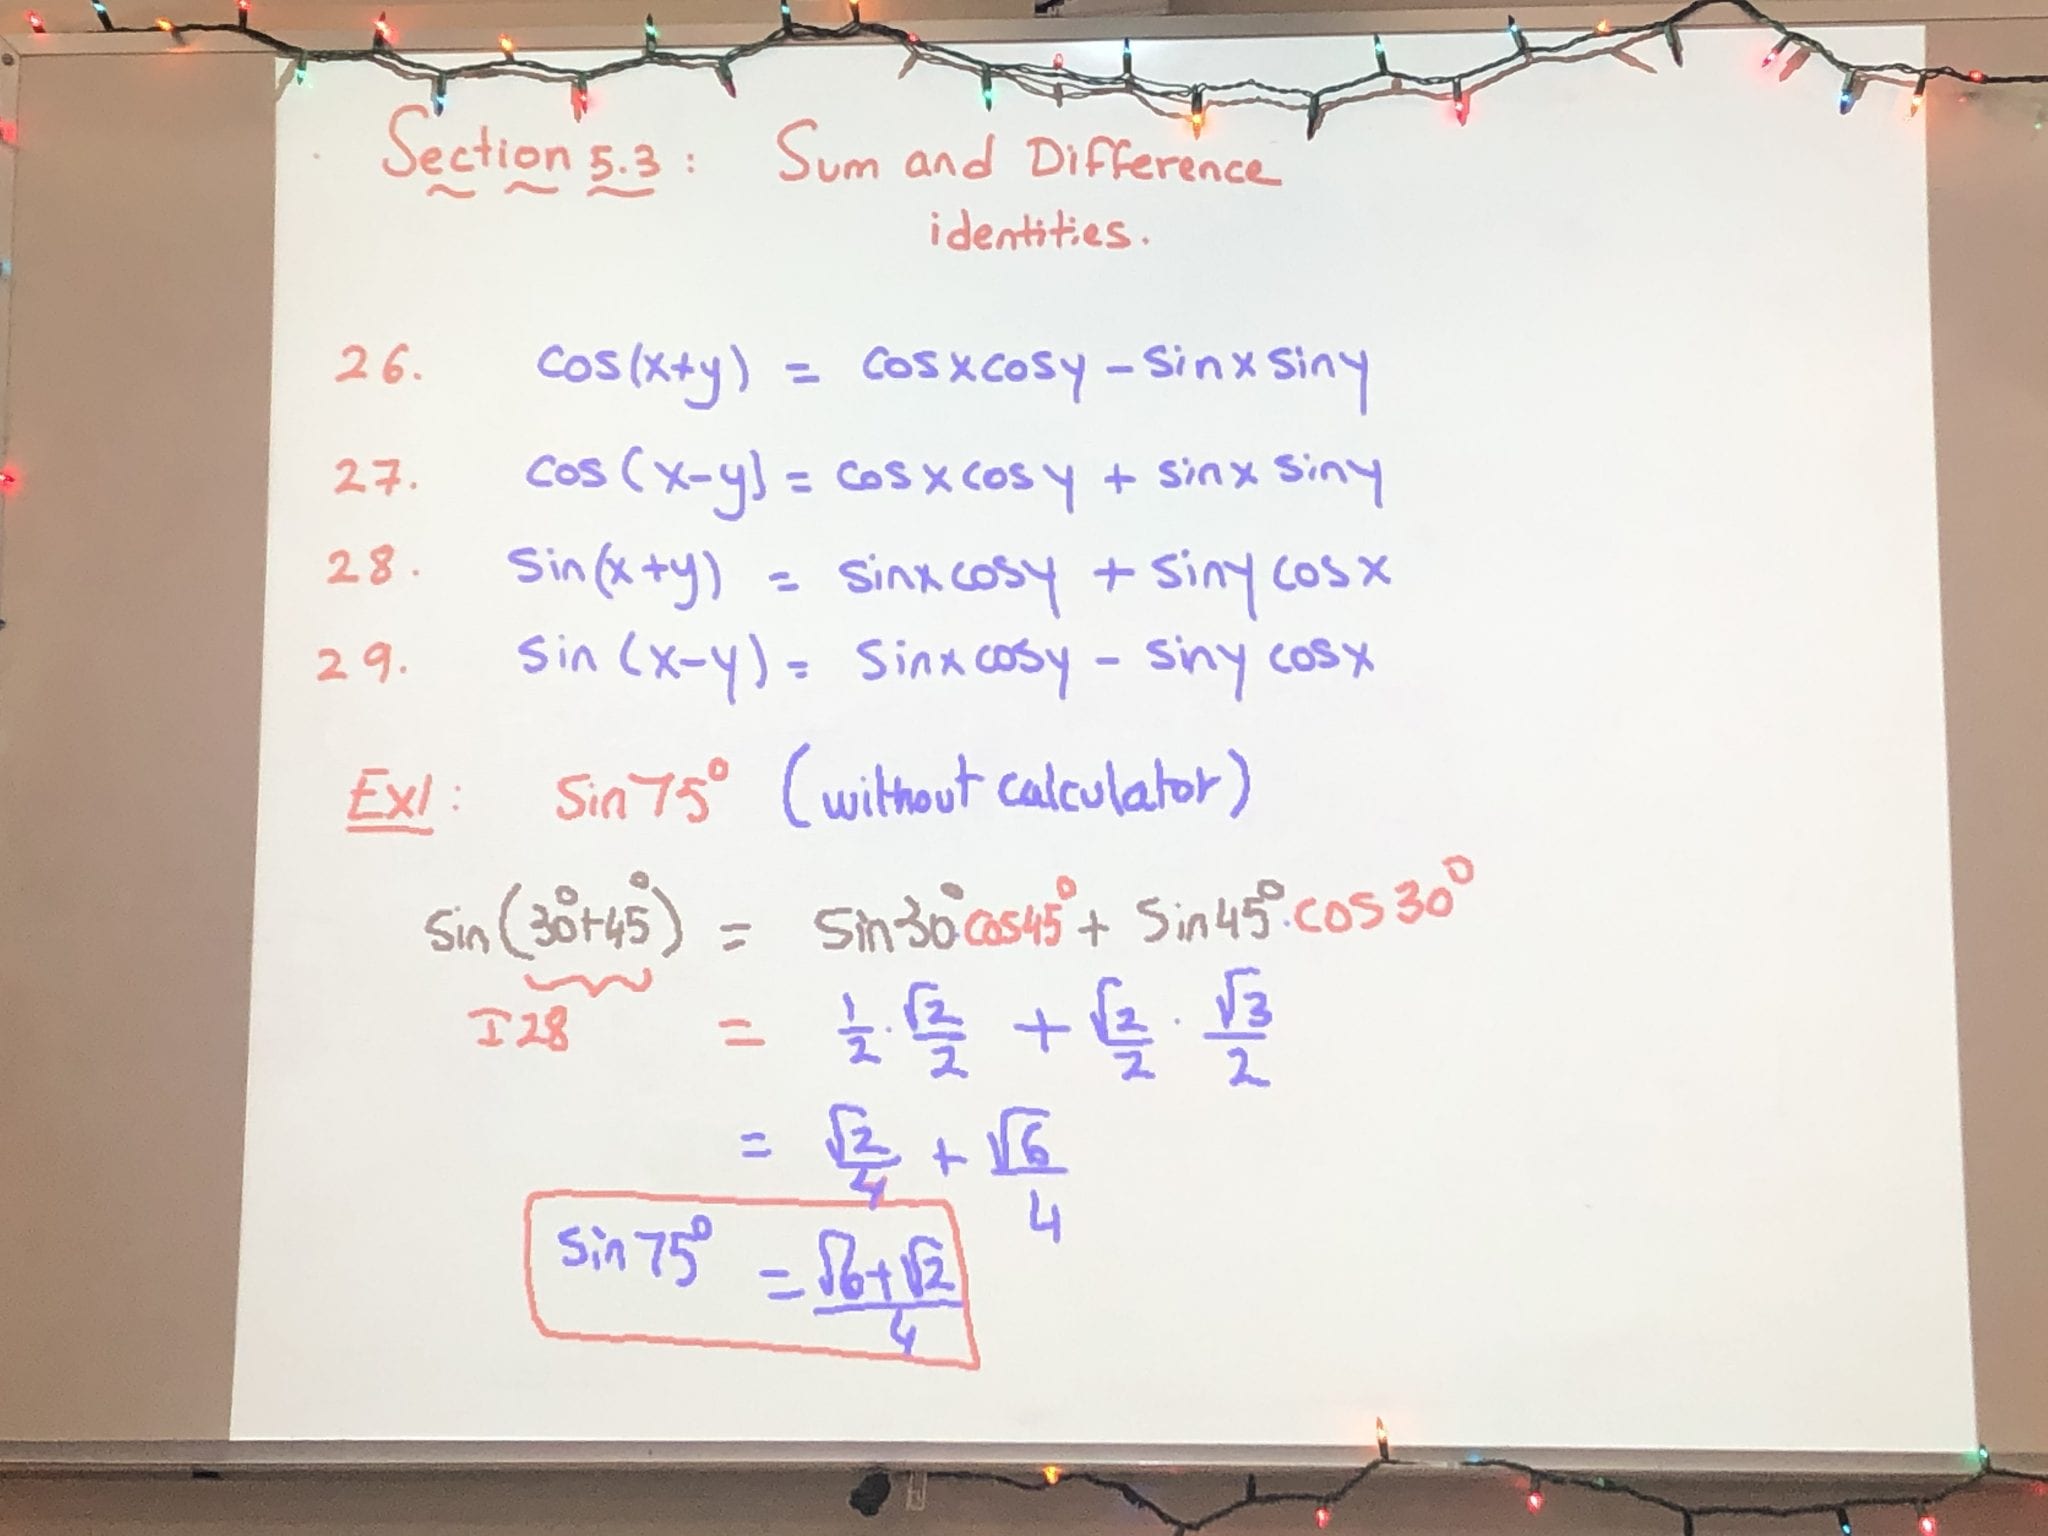 Section 5.3 : Sum and Difference
identities.
26. cos(x+y) = cosxcosy - sinx siny
27. cos(x-y) = cosxcosy + sinx siny
28. sin(x+y) = sinxcosy + siny cosx
29. sin(x-y) = sinxcosy - siny cosx
Ex1: sin75° (without calculator)
sin(30°+45°) = sin30°·cos45° + sin45°·cos30°
I28 = 1/2 · √2/2 + √2/2 · √3/2
= √2/4 + √6/4
sin75° = √6+√2/4